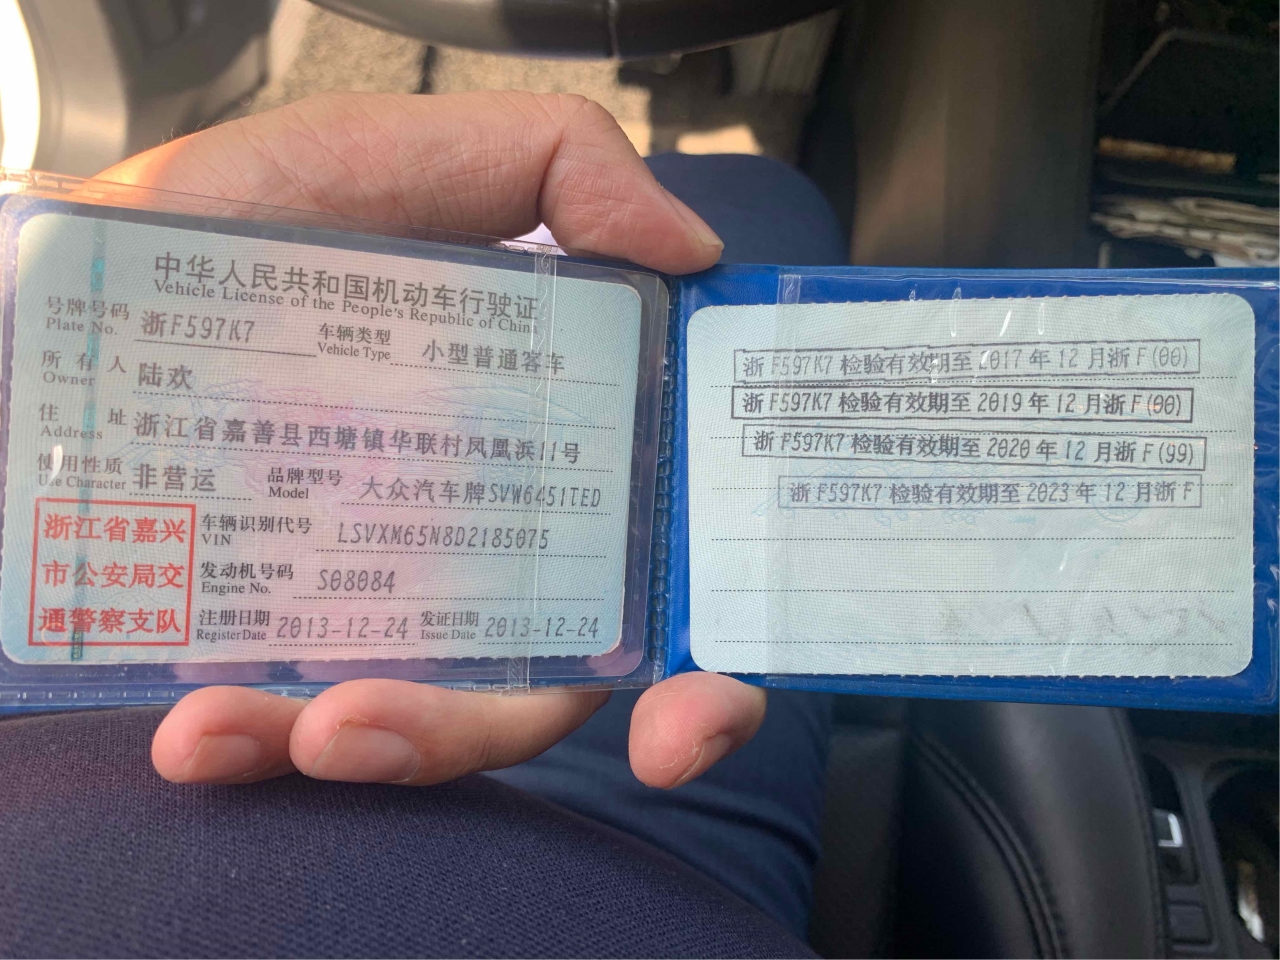 中华人民共和国机动车行驶证
Vehicle License of the People's Republic of China
号牌号码 浙F597K7 车辆类型 小型普通客车
Plate No. Vehicle Type
所有人 陆欢
Owner
住址 浙江省嘉善县西塘镇华联村凤凰浜11号
Address
使用性质 非营运 品牌型号 大众汽车牌SVW6451TED
Use Character Model
浙江省嘉兴
市公安局交
通警察支队
车辆识别代号 LSVXM65N8D2185075
VIN
发动机号码 S08084
Engine No.
注册日期 2013-12-24 发证日期 2013-12-24
Register Date Issue Date
浙F597K7检验有效期至2017年12月浙F(00)
浙F597K7检验有效期至2019年12月浙F(00)
浙F597K7检验有效期至2020年12月浙F(99)
浙F597K7检验有效期至2023年12月浙F